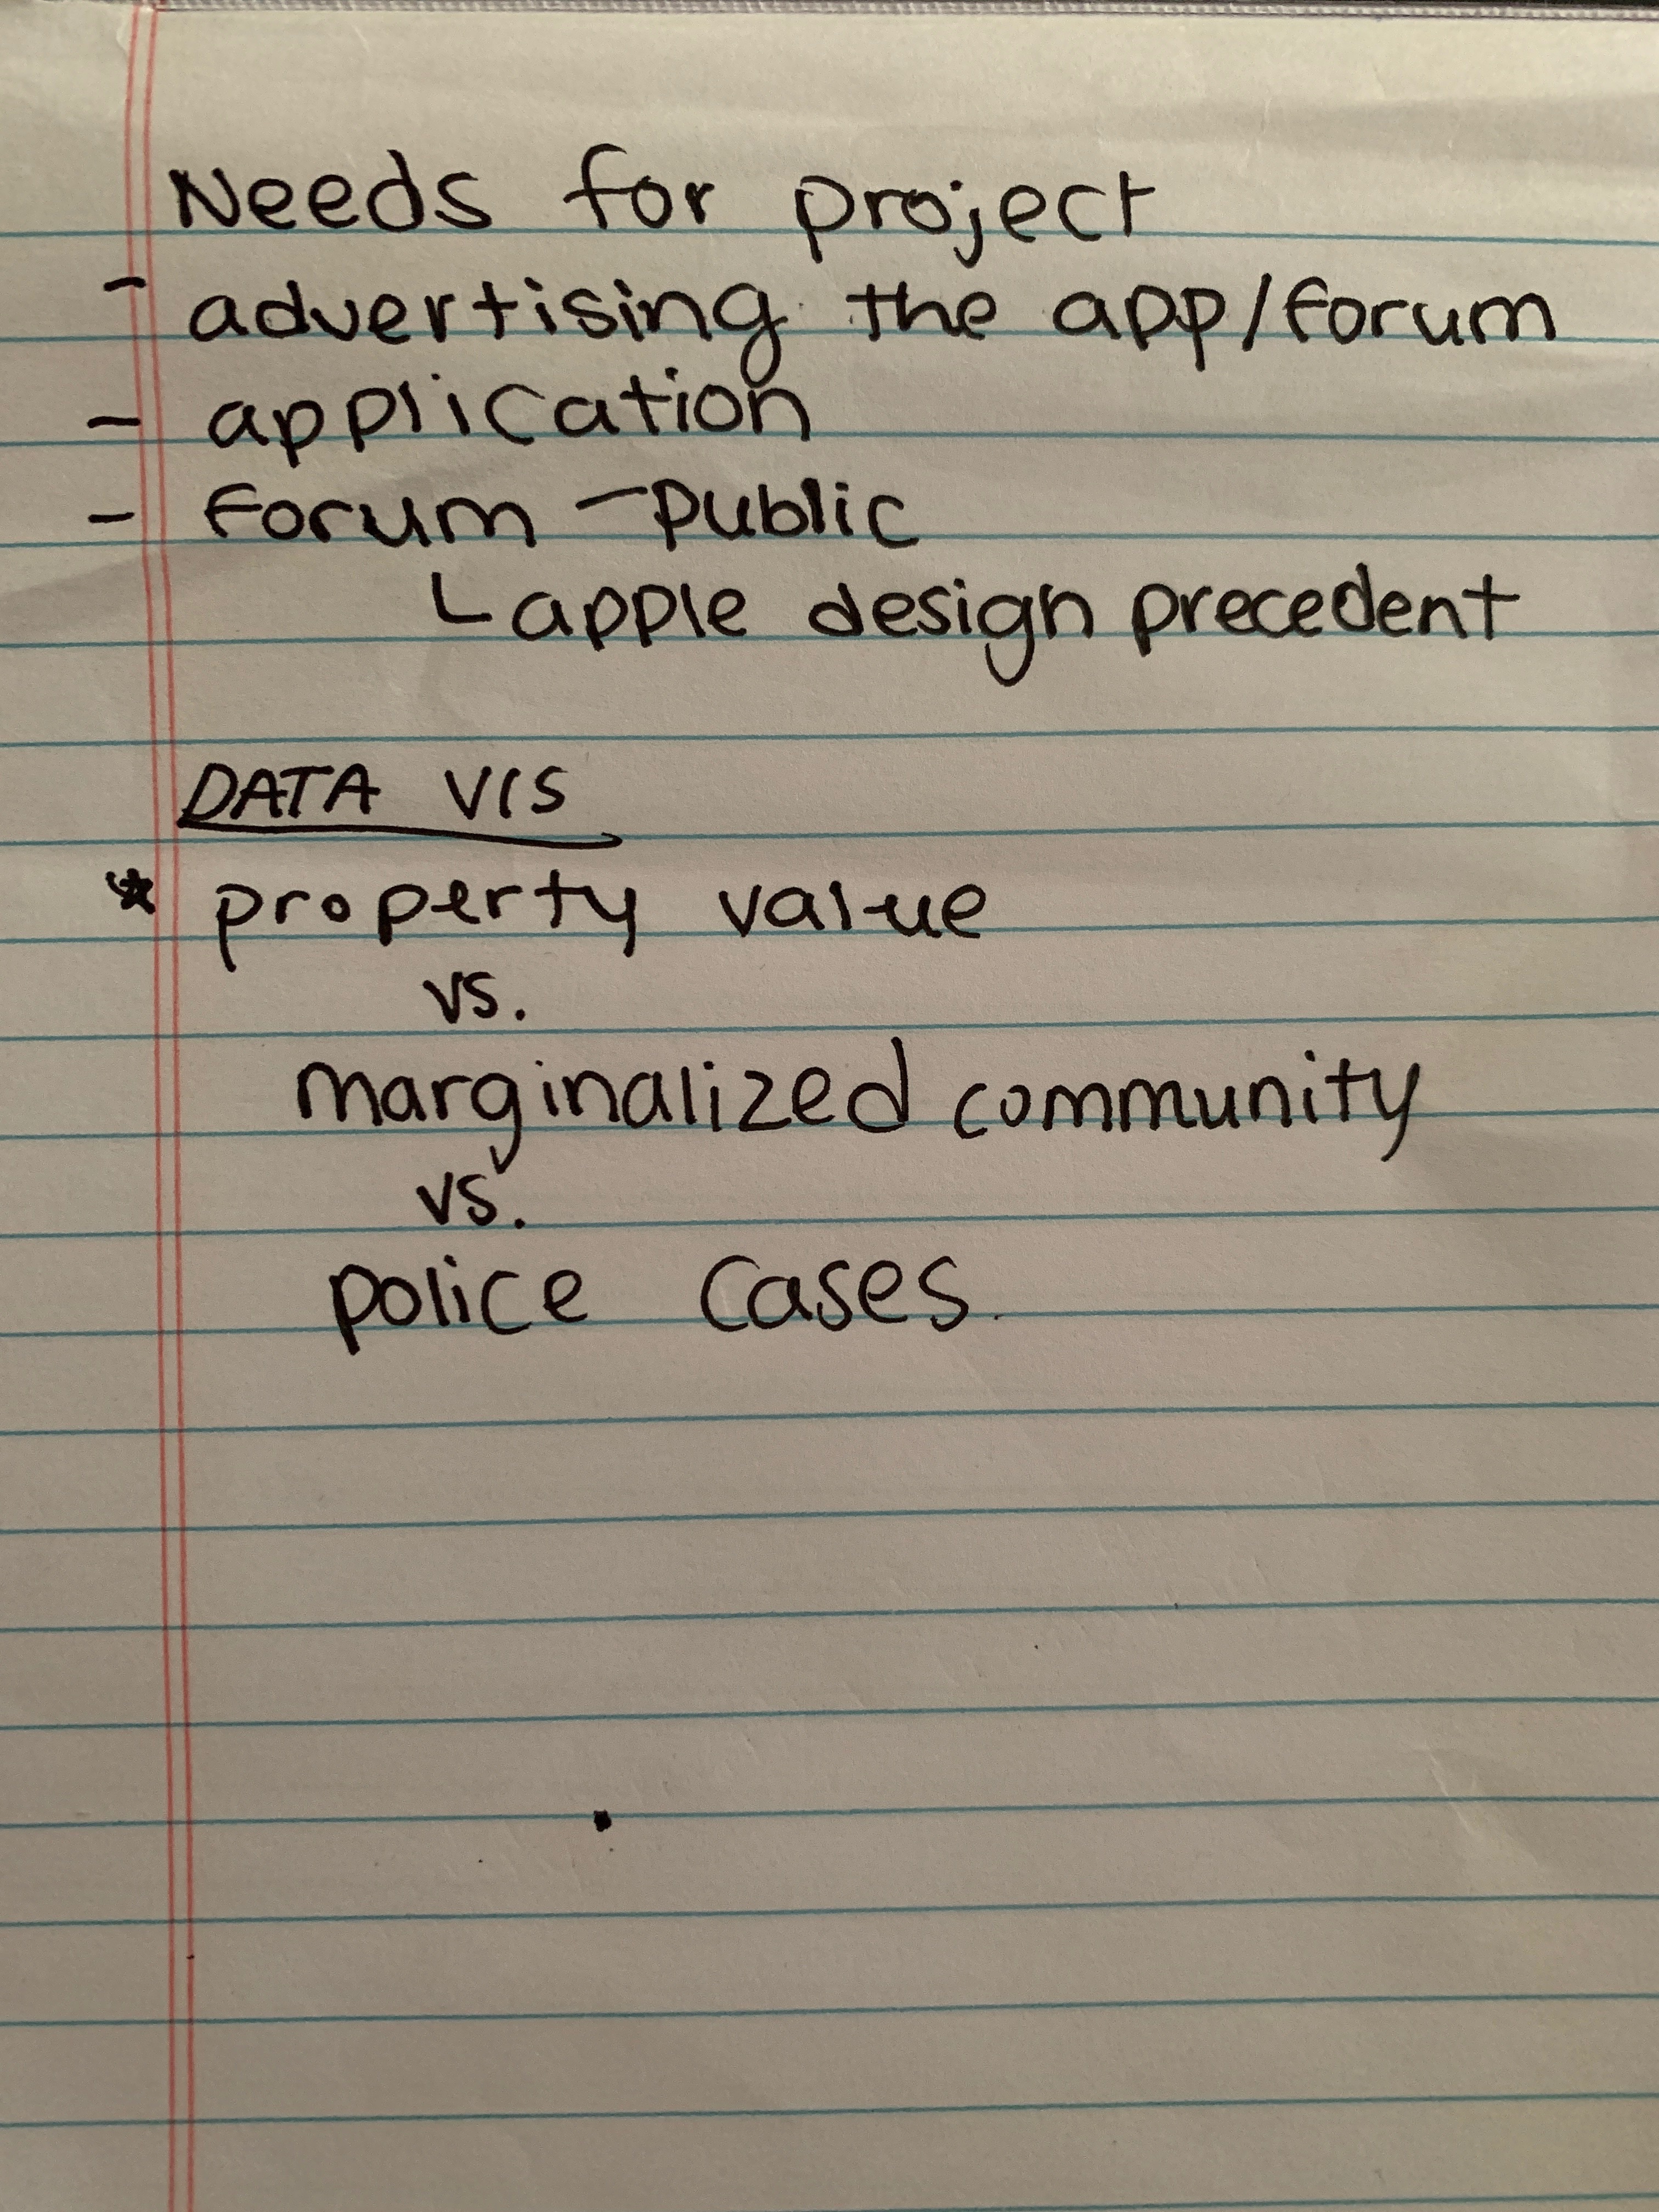 Needs for project
- advertising the app/forum
- application
- Forum - Public
└ apple design precedent
DATA VIS
* property value
vs.
marginalized community
vs.
police cases.